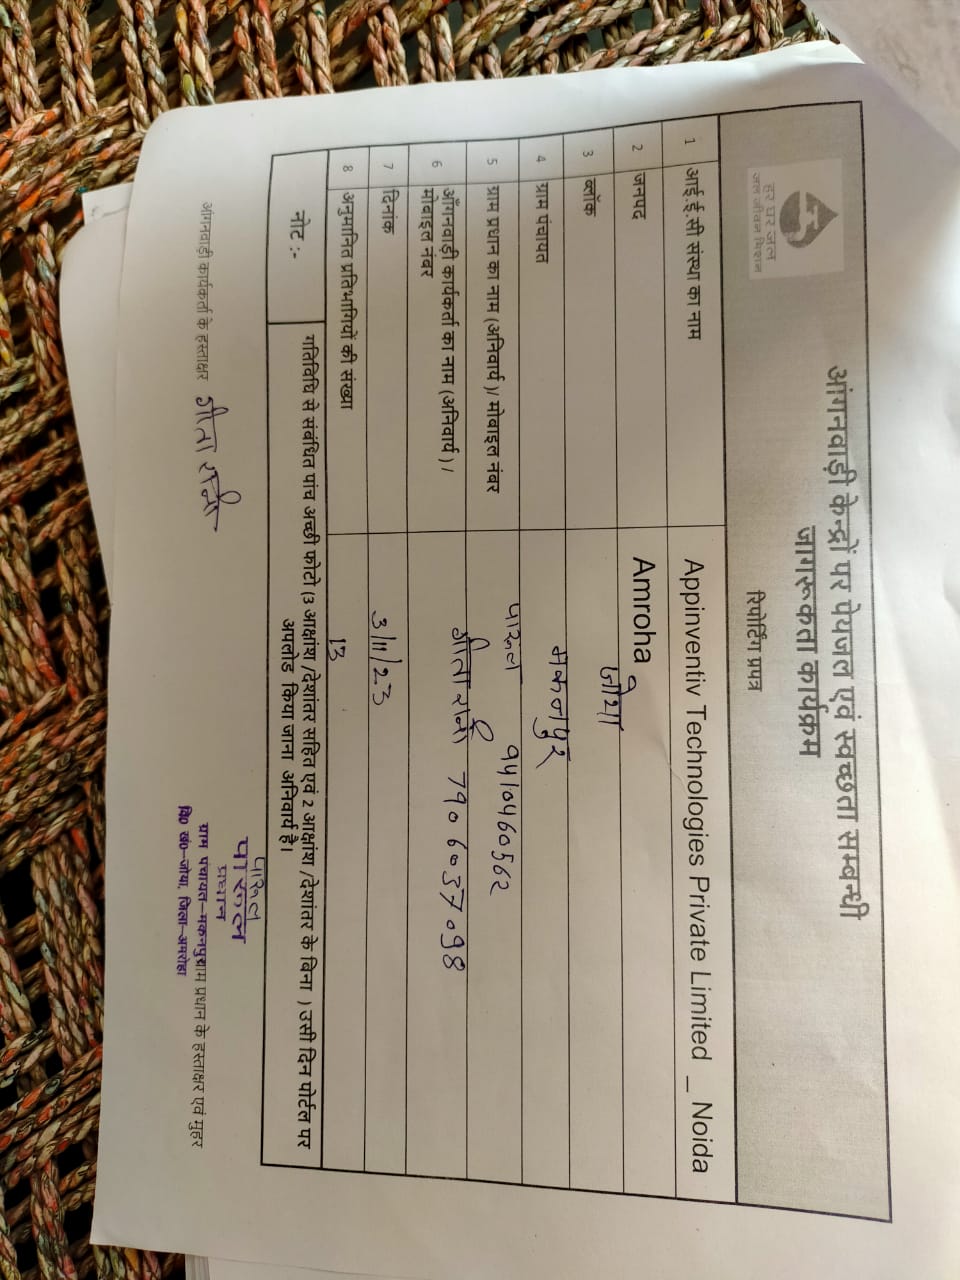 हर घर जल
जल जीवन मिशन
आंगनवाड़ी केन्द्रों पर पेयजल एवं स्वच्छता सम्बन्धी
जागरूकता कार्यक्रम
रिपोर्टिंग प्रपत्र
1 आई.ई.सी संस्था का नाम Appinventiv Technologies Private Limited _ Noida
2 जनपद Amroha
3 ब्लॉक जोया
4 ग्राम पंचायत मकनपुर
5 ग्राम प्रधान का नाम (अनिवार्य)/ मोबाइल नंबर पारूल 9410460562
6 आँगनवाड़ी कार्यकर्ता का नाम (अनिवार्य ) / मोबाइल नंबर गीता रानी 7906037098
7 दिनांक 3/11/23
8 अनुमानित प्रतिभागियों की संख्या 13
नोट :- गतिविधि से संबंधित पांच अच्छी फोटो (3 आक्षांश /देशांतर सहित एवं 2 आक्षांश /देशांतर के बिना ) उसी दिन पोर्टल पर
अपलोड किया जाना अनिवार्य है।
आंगनवाड़ी कार्यकर्ता के हस्ताक्षर गीता रानी
पारूल
पारूल
प्रधान
ग्राम पंचायत-मकनपुर
वि० खं०-जोया, जिला-अमरोहा
ग्राम प्रधान के हस्ताक्षर एवं मुहर